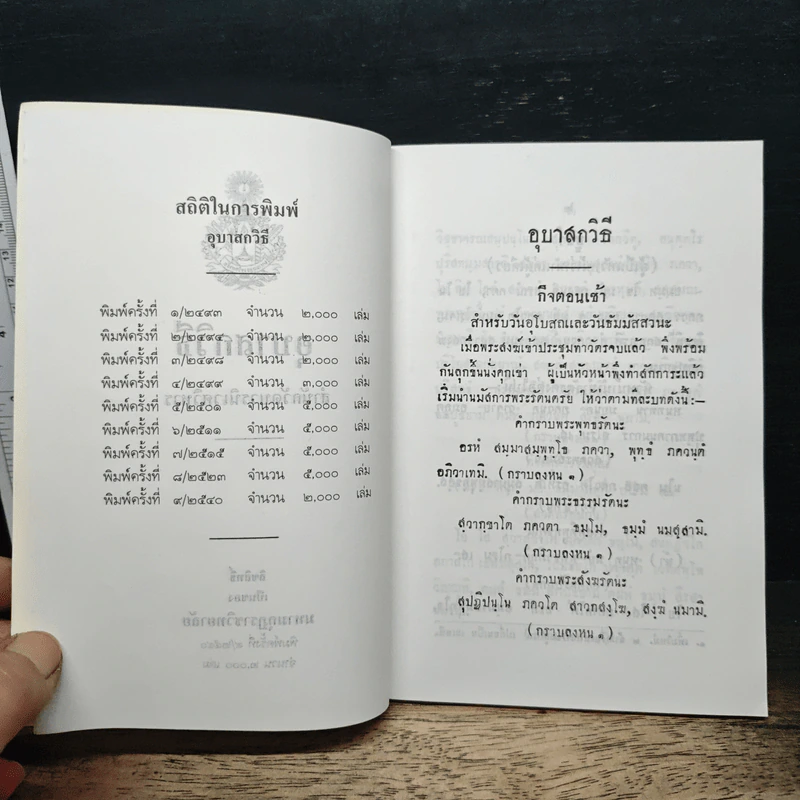 สถิติในการพิมพ์
อุบาสกวิธี
พิมพ์ครั้งที่ ๑/๒๔๙๓ จำนวน ๒,๐๐๐ เล่ม
พิมพ์ครั้งที่ ๒/๒๔๙๔ จำนวน ๒,๐๐๐ เล่ม
พิมพ์ครั้งที่ ๓/๒๔๙๘ จำนวน ๒,๐๐๐ เล่ม
พิมพ์ครั้งที่ ๔/๒๔๙๙ จำนวน ๓,๐๐๐ เล่ม
พิมพ์ครั้งที่ ๕/๒๕๐๑ จำนวน ๕,๐๐๐ เล่ม
พิมพ์ครั้งที่ ๖/๒๕๑๑ จำนวน ๕,๐๐๐ เล่ม
พิมพ์ครั้งที่ ๗/๒๕๑๕ จำนวน ๕,๐๐๐ เล่ม
พิมพ์ครั้งที่ ๘/๒๕๒๓ จำนวน ๕,๐๐๐ เล่ม
พิมพ์ครั้งที่ ๙/๒๕๔๐ จำนวน ๒,๐๐๐ เล่ม
อุบาสกวิธี
กิจตอนเช้า
สำหรับวันอุโบสถและวันธัมมัสสวนะ
เมื่อพระสงฆ์เข้าประชุมทำวัตรจบแล้ว พึงพร้อม
กันลุกขึ้นนั่งคุกเข่า ผู้เป็นหัวหน้าพึงทำสักการะแล้ว
เริ่มนำนมัสการพระรัตนตรัย ให้ว่าตามทีละบทดังนี้:—
คำกราบพระพุทธรัตนะ
อรหํ สมฺมาสมฺพุทฺโธ ภควา, พุทฺธํ ภควนฺตํ
อภิวาเทมิ. (กราบลงหน ๑)
คำกราบพระธรรมรัตนะ
สฺวากฺขาโต ภควตา ธมฺโม, ธมฺมํ นมสฺสามิ.
(กราบลงหน ๑)
คำกราบพระสังฆรัตนะ
สุปฏิปนฺโน ภควโต สาวกสงฺโฆ, สงฺฆํ นมามิ.
(กราบลงหน ๑)